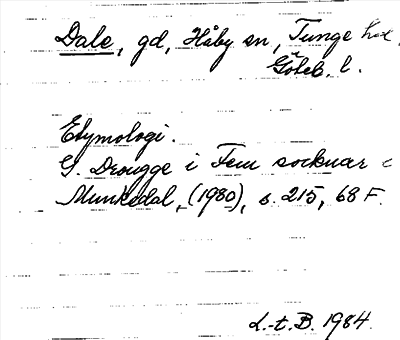 Dale, gd, Håby sn, Tunge hd.
Göteb. l.
Etymologi.
G. Drougge i Fem socknar i
Munkedal, (1980), s. 215, 68 F.
L.-t. B. 1984.